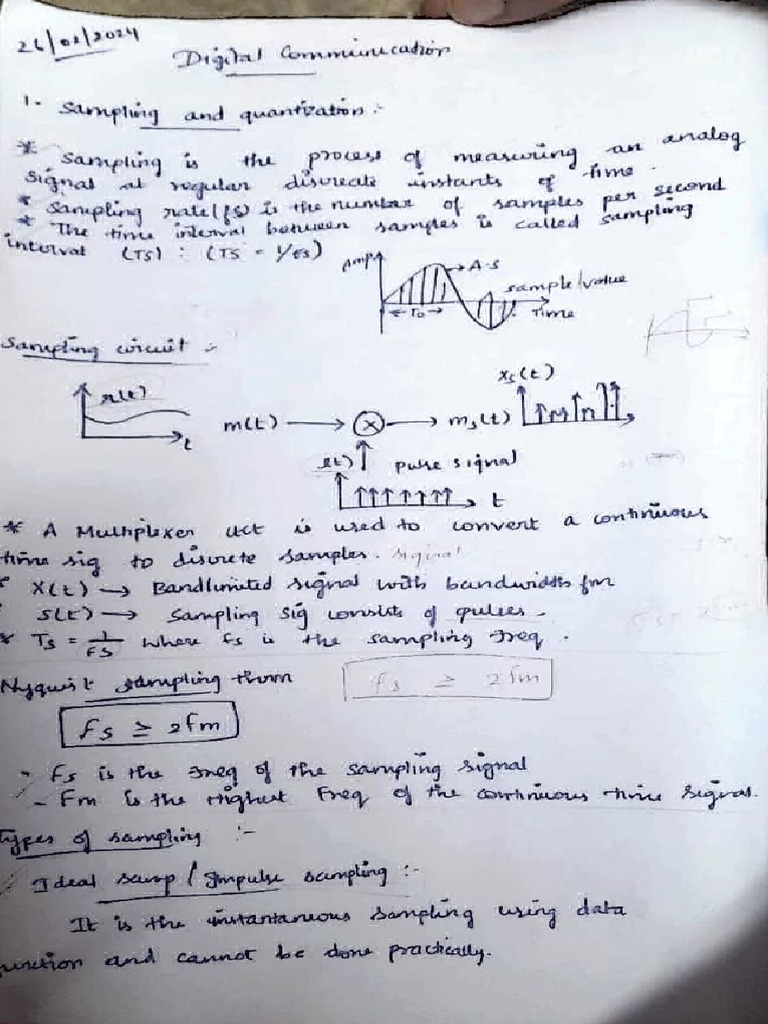 26/02/2024
Digital Communication
1. Sampling and quantization :-
* Sampling is the process of measuring an analog
signal at regular discreate instants of time.
* Sampling rate(fs) is the number of samples per second
* The time interval between samples is called sampling
interval (TS) : (TS = 1/fs)
Amp
A.S
sample/value
To
Time
Sampling circuit :-
x(t)
t
m(t)
X
ms(t)
xs(t)
s(t)
pulse signal
t
* A Multiplexer ckt is used to convert a continuous
time sig to discrete samples. signal
* X(t) → Bandlimited signal with bandwidth fm
* s(t) → sampling sig consists of pulses.
* Ts = 1/FS where fs is the sampling freq.
Nyquist sampling thrm
fs ≥ 2fm
fs ≥ 2fm
- Fs is the freq of the sampling signal
- Fm is the Highest Freq of the continuous time signal.
Types of sampling :-
Ideal samp / Impulse sampling :-
It is the instantaneous sampling using data
function and cannot be done practically.